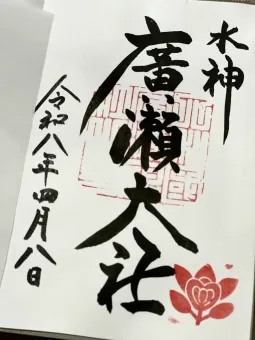 水神
廣瀬大社
令和八年四月八日